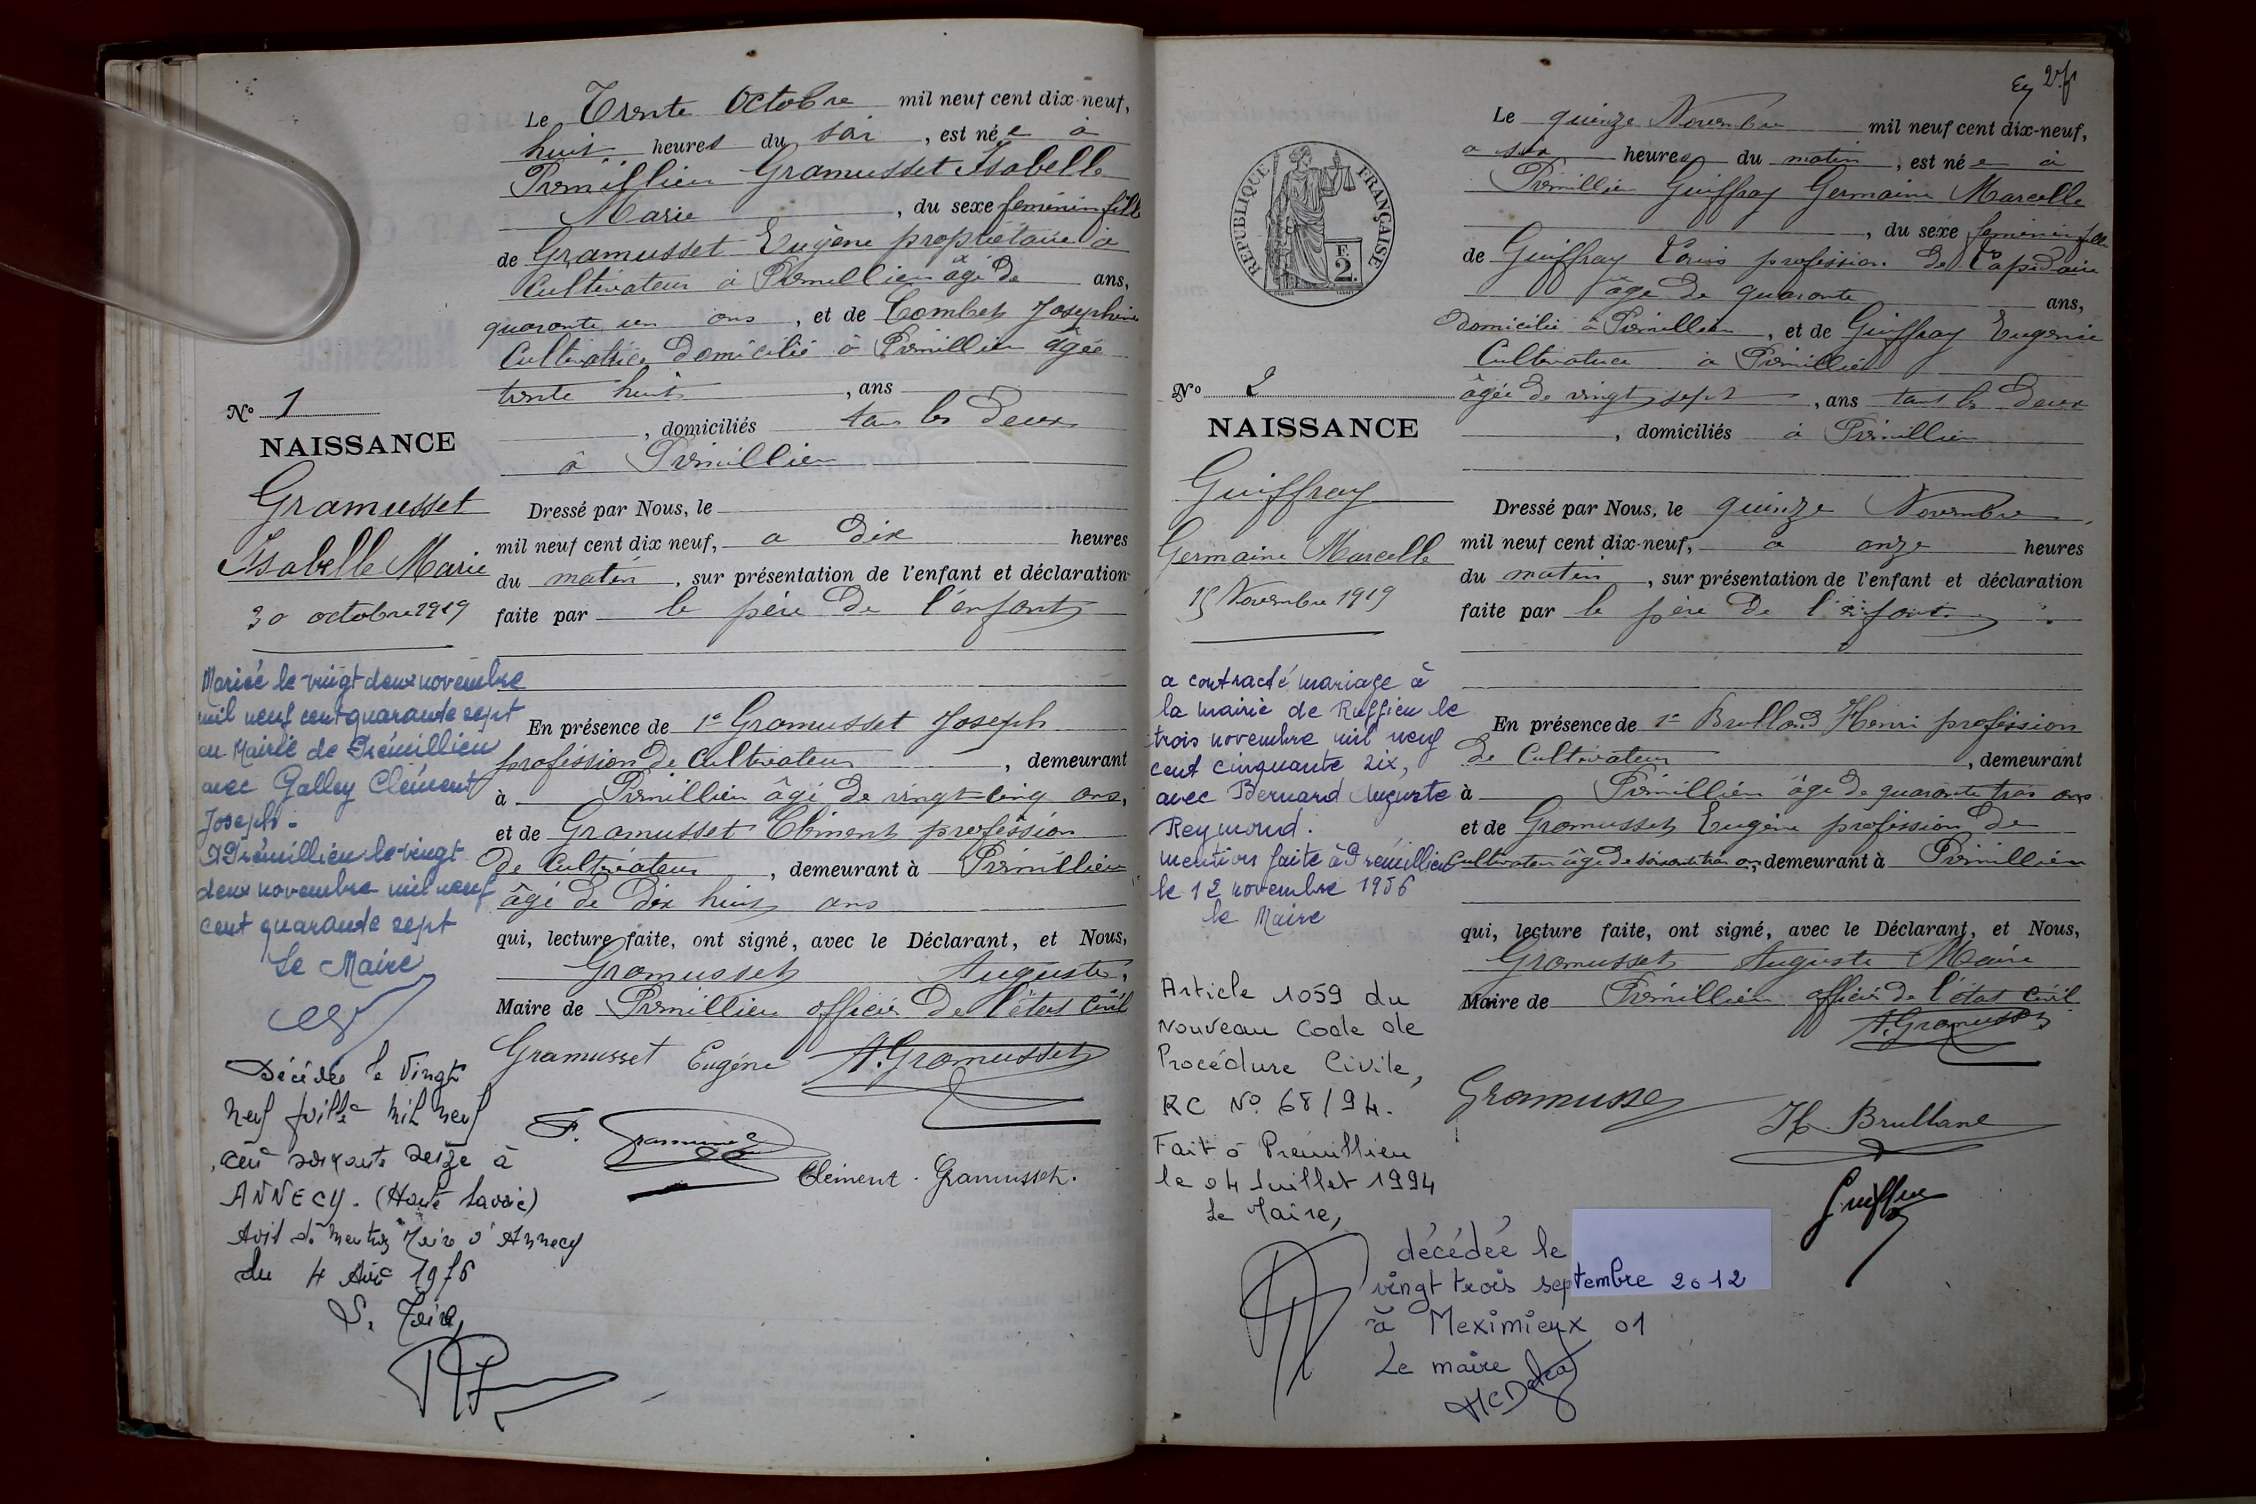 Le Trente Octobre mil neuf cent dix-neuf,
huit heures du soir, est née à
Prémillieu Gramusset Isabelle
Marie, du sexe féminin fille
de Gramusset Eugène propriétaire à
Cultivateur à Prémillieu âgé de ans,
quarante un ans, et de Combet Joséphine
Cultivatrice domicilié à Prémillieu âgée
trente huit, ans
, domiciliés tous les deux
à Prémillieu
Dressé par Nous, le
mil neuf cent dix neuf, a dix heures
du matin, sur présentation de l'enfant et déclaration
faite par le père de l'enfant
En présence de 1º Gramusset Joseph
profession de Cultivateur, demeurant
à Prémillieu âgé de vingt cinq ans,
et de Gramusset Clément profession
de Cultivateur, demeurant à Prémillieu
âgé de dix huit ans
qui, lecture faite, ont signé, avec le Déclarant, et Nous,
Gramusset Auguste,
Maire de Prémillieu officier de l'état civil
Gramusset Eugène A. Gramusset
Clément Gramusset.
Nº 1
NAISSANCE
Gramusset
Isabelle Marie
30 octobre 1919
Mariée le vingt deux novembre
mil neuf cent quarante sept
en Mairie de Prémillieu
avec Galley Clément
Joseph.
A Prémillieu le vingt
deux novembre mil neuf
cent quarante sept
Le Maire
Décédée le Vingt
neuf juillet mil neuf
cent soixante seize à
ANNECY. (Haute Savoie)
Avis de mention Mairie d'Annecy
du 4 Août 1976
Le Maire
2
Le quinze Novembre mil neuf cent dix-neuf,
a six heures du matin, est née à
Prémillieu Guiffray Germaine Marcelle
, du sexe féminin fille
de Guiffray Louis profession de Lapidaire
âgé de quarante ans,
domicilié à Prémillieu, et de Guiffray Eugénie
Cultivatrice à Prémillieu
âgée de vingt sept, ans tous les deux
, domiciliés à Prémillieu
Dressé par Nous, le quinze Novembre
mil neuf cent dix-neuf, a onze heures
du matin, sur présentation de l'enfant et déclaration
faite par le père de l'enfant.
En présence de 1º Brulland Henri profession
de Cultivateur, demeurant
à Prémillieu âgé de quarante trois ans
et de Gramusset Eugène profession de
Cultivateur âgé de soixante trois ans, demeurant à Prémillieu
qui, lecture faite, ont signé, avec le Déclarant, et Nous,
Gramusset Auguste Maire
Maire de Prémillieu officier de l'état civil
A. Gramusset
Gramusset
H. Brulland
RÉPUBLIQUE FRANÇAISE
E.
2.
Nº 2
NAISSANCE
Guiffray
Germaine Marcelle
15 Novembre 1919
a contracté mariage à
la mairie de Ruffieu le
trois novembre mil neuf
cent cinquante six,
avec Bernard Auguste
Reymond.
mention faite à Prémillieu
le 12 novembre 1956
le Maire
Article 1059 du
Nouveau Code de
Procédure Civile,
RC Nº 68/94.
Fait à Prémillieu
le 04 Juillet 1994
Le Maire,
décédée le
vingt trois septembre 2012
à Meximieux 01
Le maire